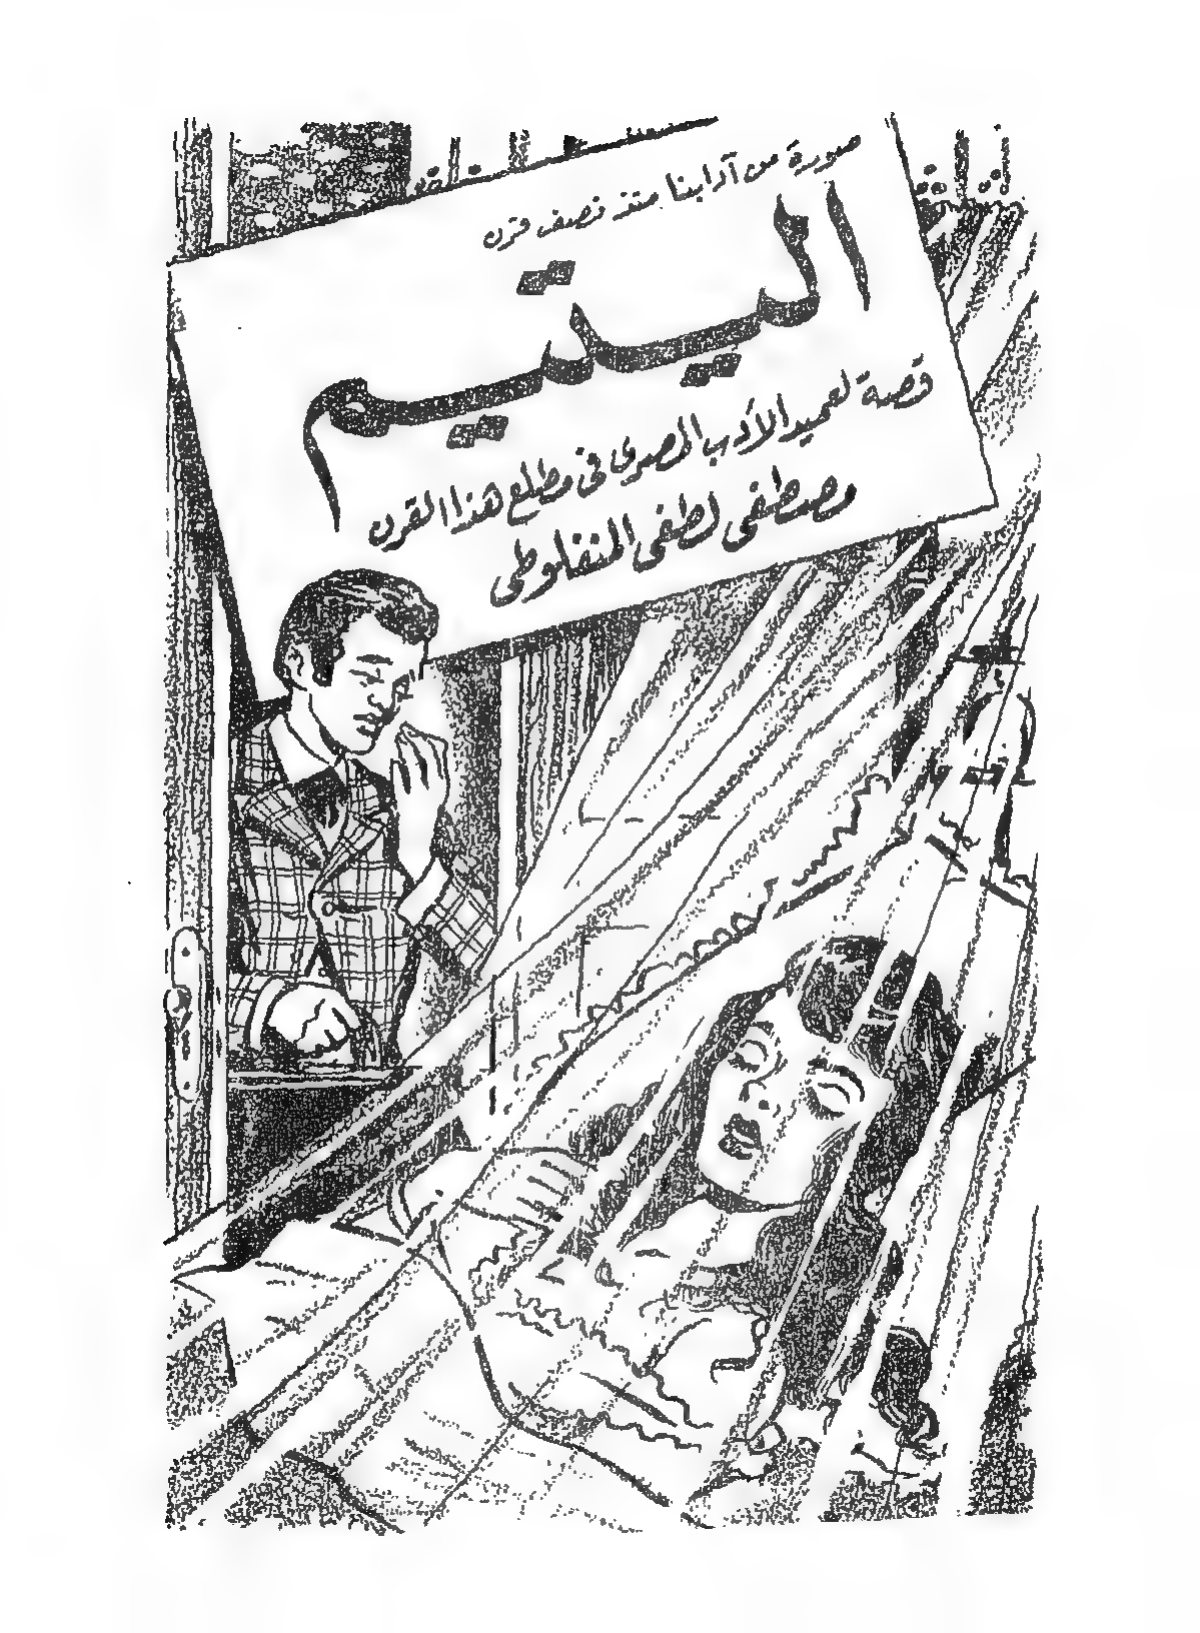 صورة من آدابنا منذ نصف قرن
اليتيم
قصة لعميد الأدب المصرى فى مطلع هذا القرن
مصطفى لطفى المنفلوطى